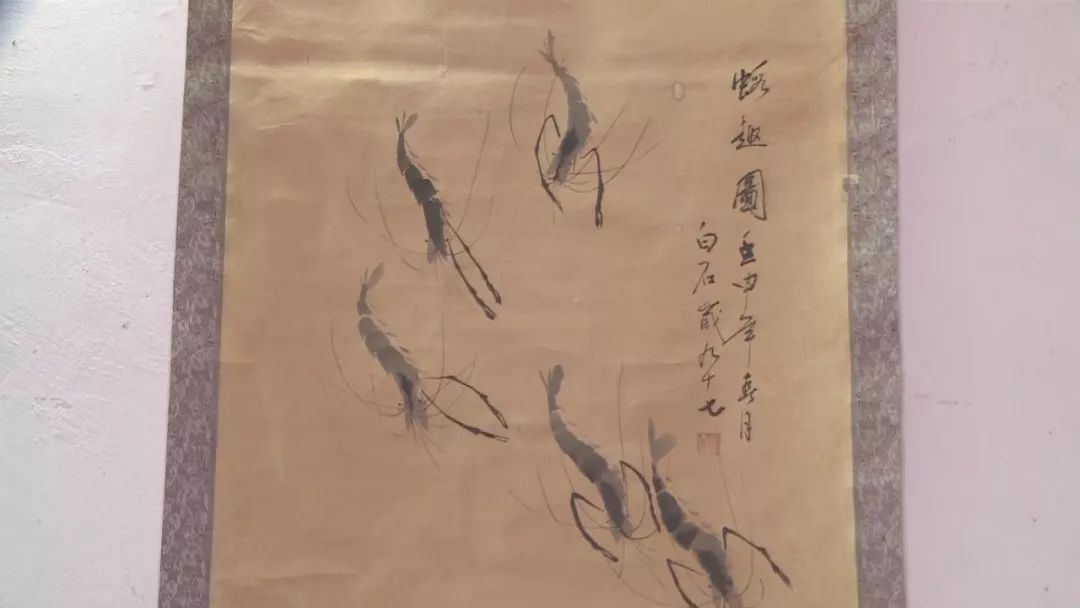 蝦趣圖壬申年春月
白石歲九十七